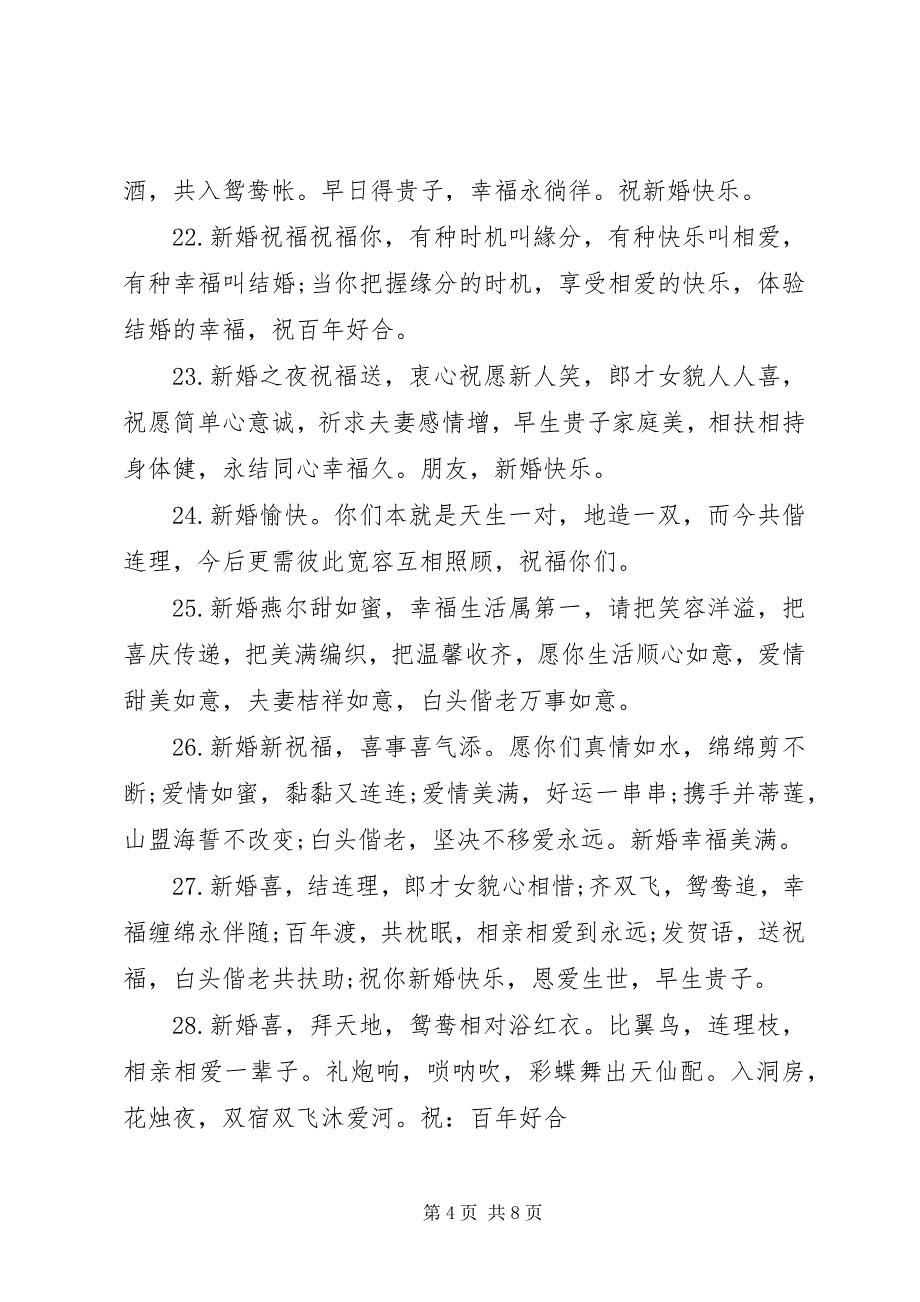 酒，共入鸳鸯帐。早日得贵子，幸福永徜徉。祝新婚快乐。
22.新婚祝福祝福你，有种时机叫緣分，有种快乐叫相爱，
有种幸福叫结婚;当你把握缘分的时机，享受相爱的快乐，体验
结婚的幸福，祝百年好合。
23.新婚之夜祝福送，衷心祝愿新人笑，郎才女貌人人喜，
祝愿简单心意诚，祈求夫妻感情增，早生贵子家庭美，相扶相持
身体健，永结同心幸福久。朋友，新婚快乐。
24.新婚愉快。你们本就是天生一对，地造一双，而今共偕
连理，今后更需彼此宽容互相照顾，祝福你们。
25.新婚燕尔甜如蜜，幸福生活属第一，请把笑容洋溢，把
喜庆传递，把美满编织，把温馨收齐，愿你生活顺心如意，爱情
甜美如意，夫妻桔祥如意，白头偕老万事如意。
26.新婚新祝福，喜事喜气添。愿你们真情如水，绵绵剪不
断;爱情如蜜，黏黏又连连;爱情美满，好运一串串;携手并蒂莲，
山盟海誓不改变;白头偕老，坚决不移爱永远。新婚幸福美满。
27.新婚喜，结连理，郎才女貌心相惜;齐双飞，鸳鸯追，幸
福缠绵永伴随;百年渡，共枕眠，相亲相爱到永远;发贺语，送祝
福，白头偕老共扶助;祝你新婚快乐，恩爱生世，早生贵子。
28.新婚喜，拜天地，鸳鸯相对浴红衣。比翼鸟，连理枝，
相亲相爱一辈子。礼炮响，唢呐吹，彩蝶舞出天仙配。入洞房，
花烛夜，双宿双飞沐爱河。祝：百年好合
第 4 页 共 8 页